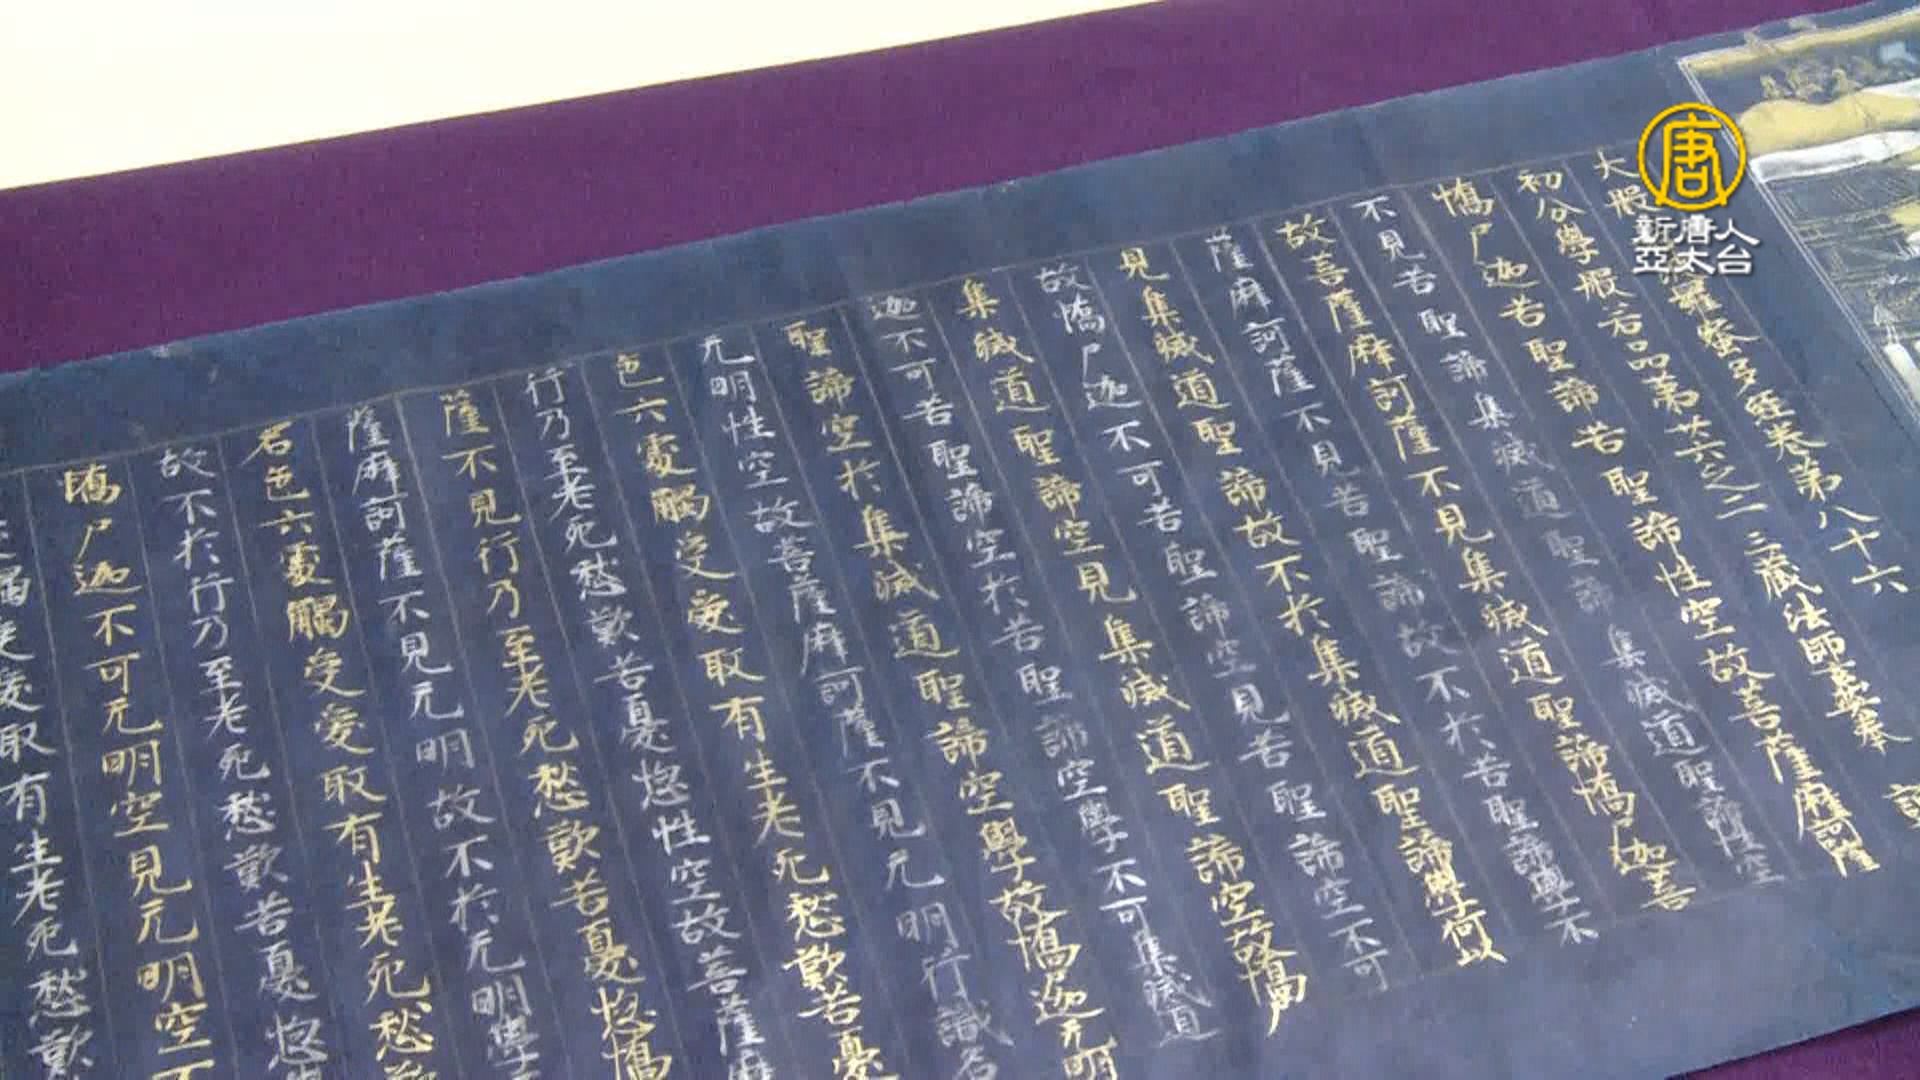 大般羅蜜多經卷第八十六
初分學般若品第廿六之二 三藏法師玄奘奉
憍尸迦若聖諦若聖諦性空故菩薩摩訶薩
不見若聖諦集滅道聖諦集滅道聖諦性空
故菩薩摩訶薩不見集滅道聖諦憍尸迦菩
薩摩訶薩不見若聖諦故不於若聖諦學不
見集滅道聖諦故不於集滅道聖諦學何以
故憍尸迦不可若聖諦空見若聖諦空不可
集滅道聖諦空見集滅道聖諦空故憍尸
迦不可若聖諦空於若聖諦空學不可集滅道
聖諦空於集滅道聖諦空學故憍尸迦无明
无明性空故菩薩摩訶薩不見无明行識名
色六處觸受愛取有生老死愁歎苦憂
行乃至老死愁歎苦憂惱性空故菩薩摩
薩不見行乃至老死愁歎苦憂惱憍
薩摩訶薩不見无明故不於无明學
名色六處觸受愛取有生老死愁歎
故不於行乃至老死愁歎苦憂惱
憍尸迦不可无明空見无明空不
觸受愛取有生老死愁歎
唐
新唐人
亞太台